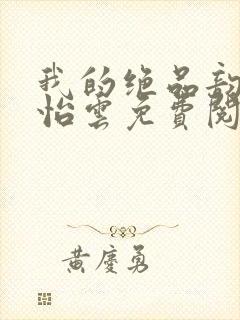 我的绝品
怡雲免費閱
黃慶勇